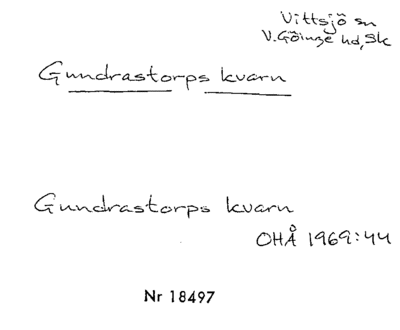 Vittsjö sn
V.Göinge hd, Sk
Gundrastorps kvarn
Gundrastorps kvarn
OHÅ 1969:44
Nr 18497